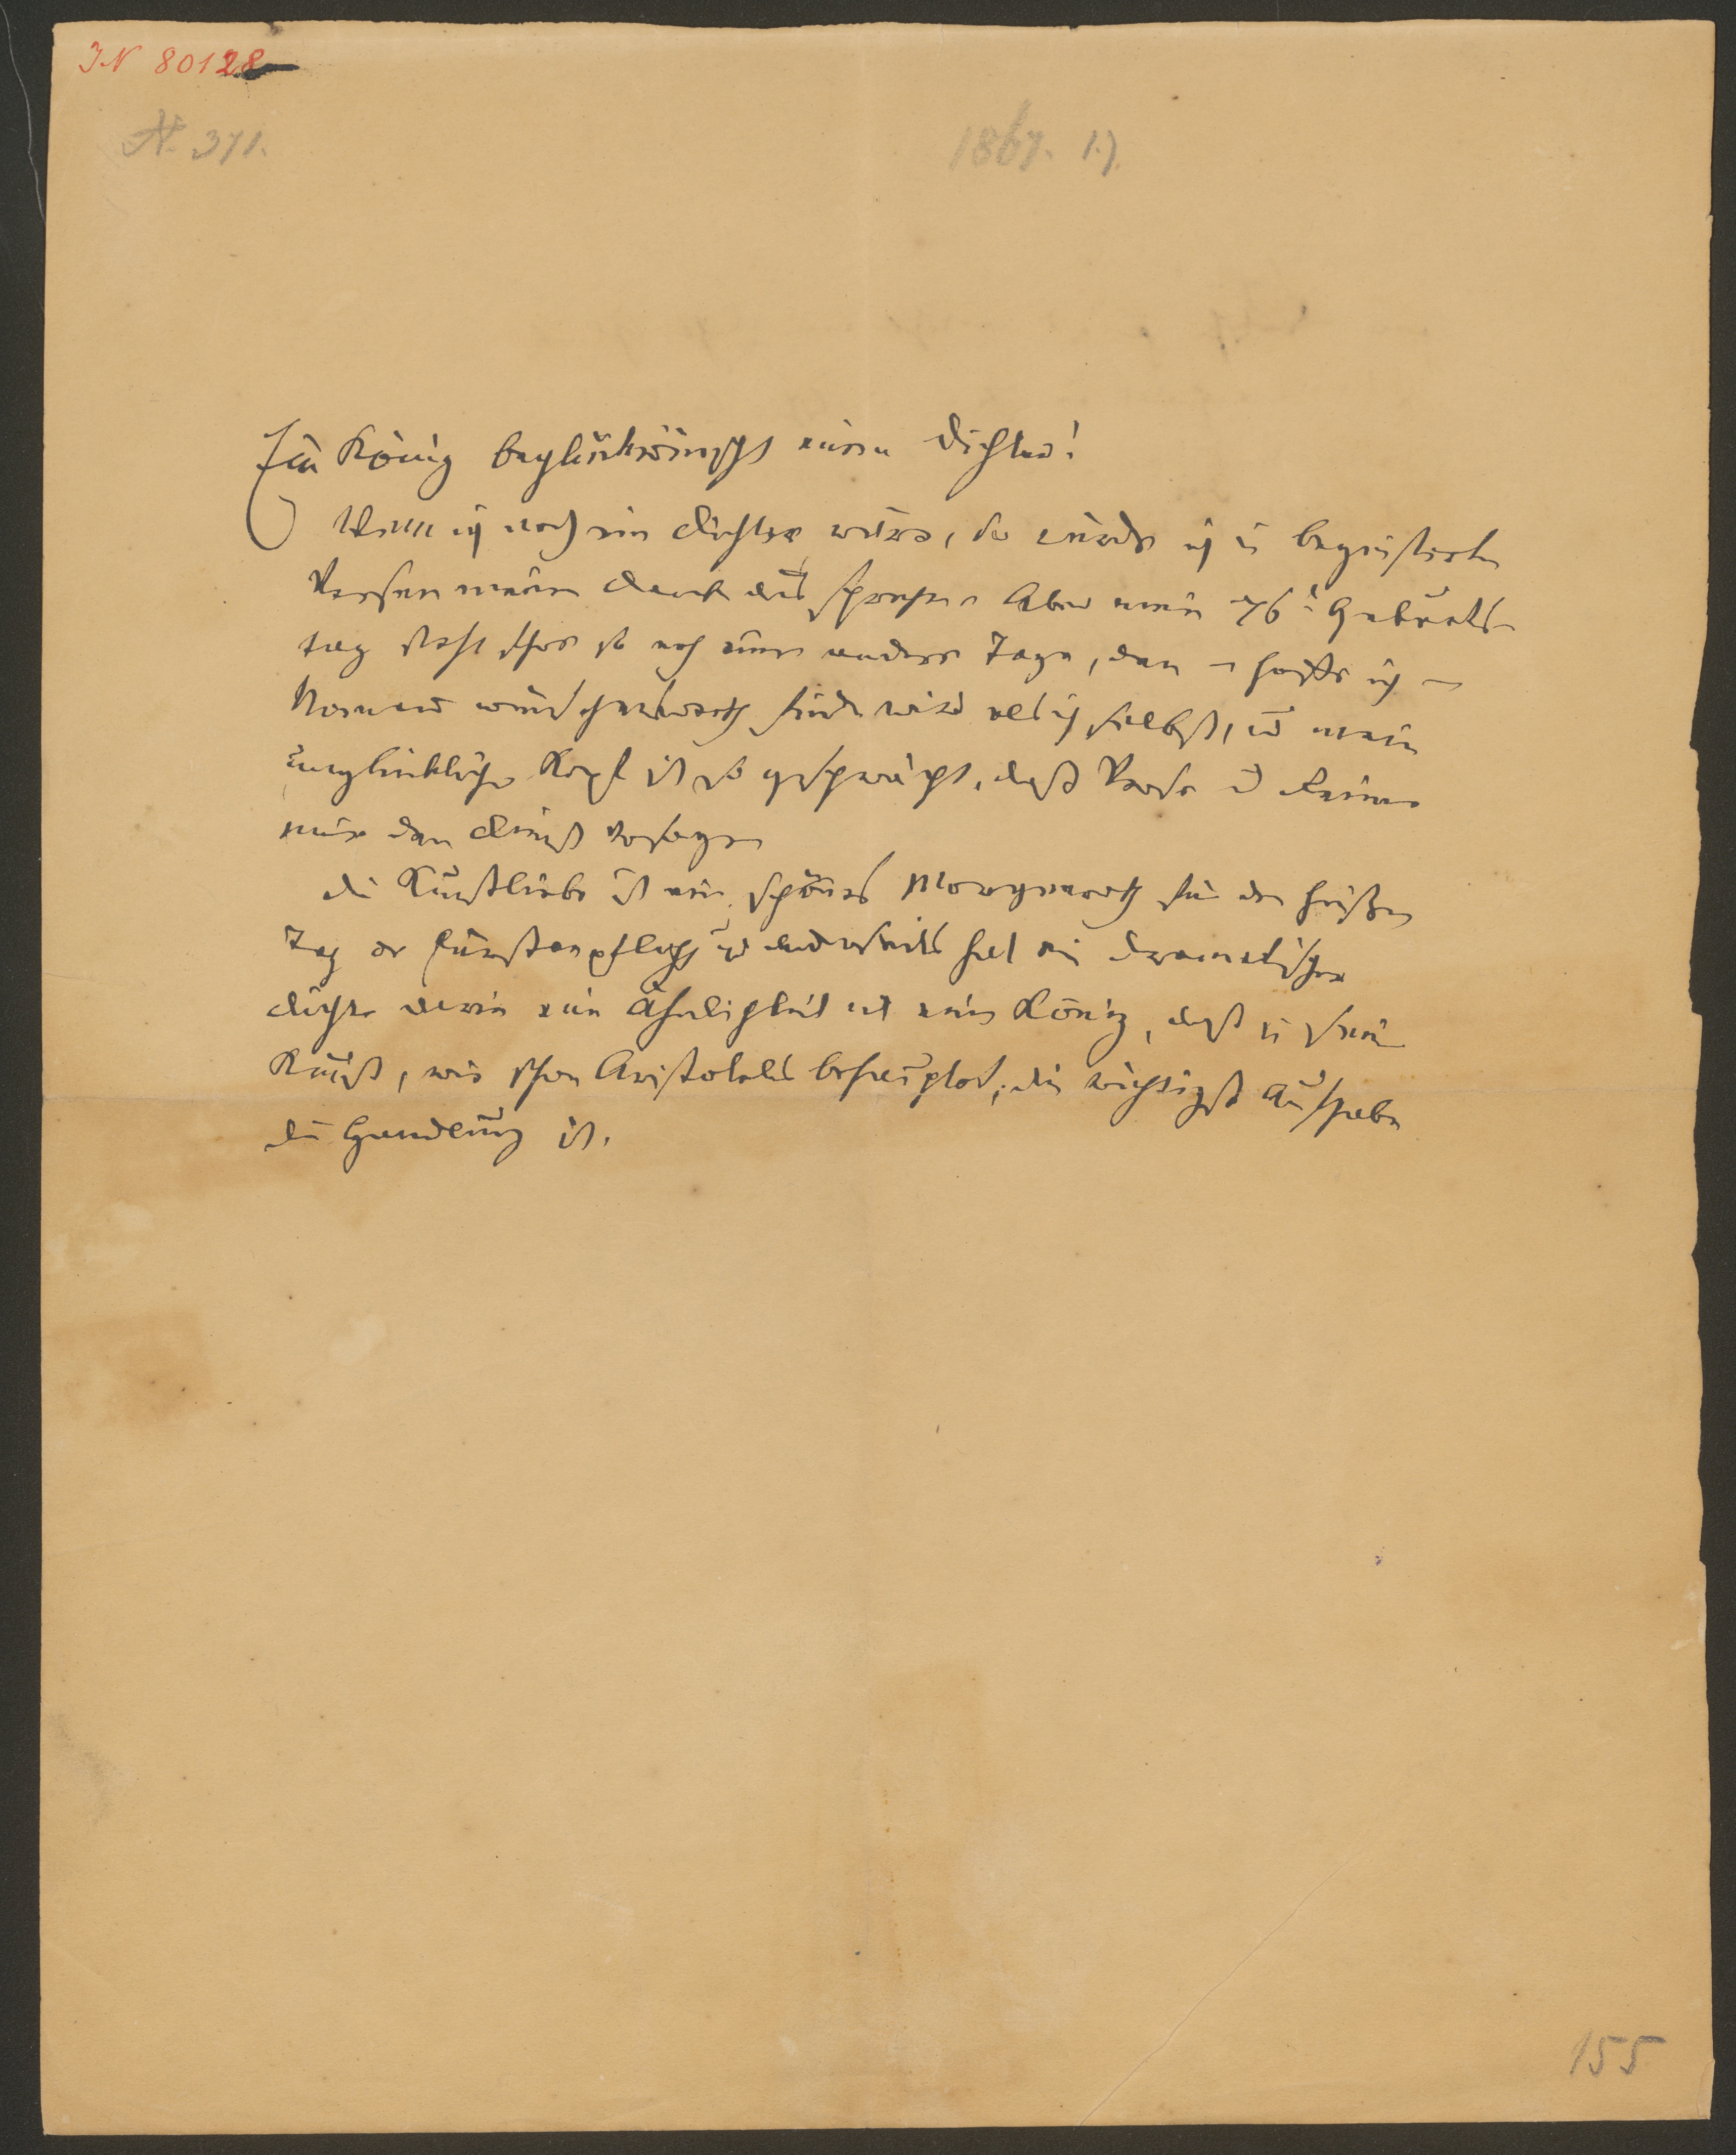 IN 80128
N. 371.
1867. 1.)
Ein König beglückwünscht einen Dichter!
Wenn ich noch ein Dichter wäre, so würde ich in begeisterten
Versen meinen Dank aussprechen. Aber mein 76t Geburts
tag steht schon so nach einem andern Tage, den – hoffe ich –
Niemand wünschenswerth finden wird als ich selbst, und mein
unglücklicher Kopf ist so geschwächt, daß Verse und Reime
mir den Dienst versagen
Die Kunstliebe ist ein schönes Morgenroth für den heißen
Tag der Fürstenpflicht und anderseits hat ein dramatischer
Dichter darin eine Ähnlichkeit mit einem König, daß in seiner
Kunst, wie schon Aristoteles behauptet, die wichtigste Aufgabe
die Handlung ist.
155